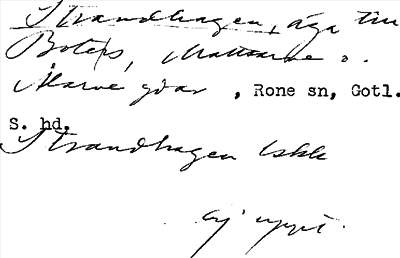 Strandhagen, äga till
Botels, Mattsarve o.
Alarve gdar, Rone sn, Gotl.
S. hd.
Strandhagen
ej uppt.